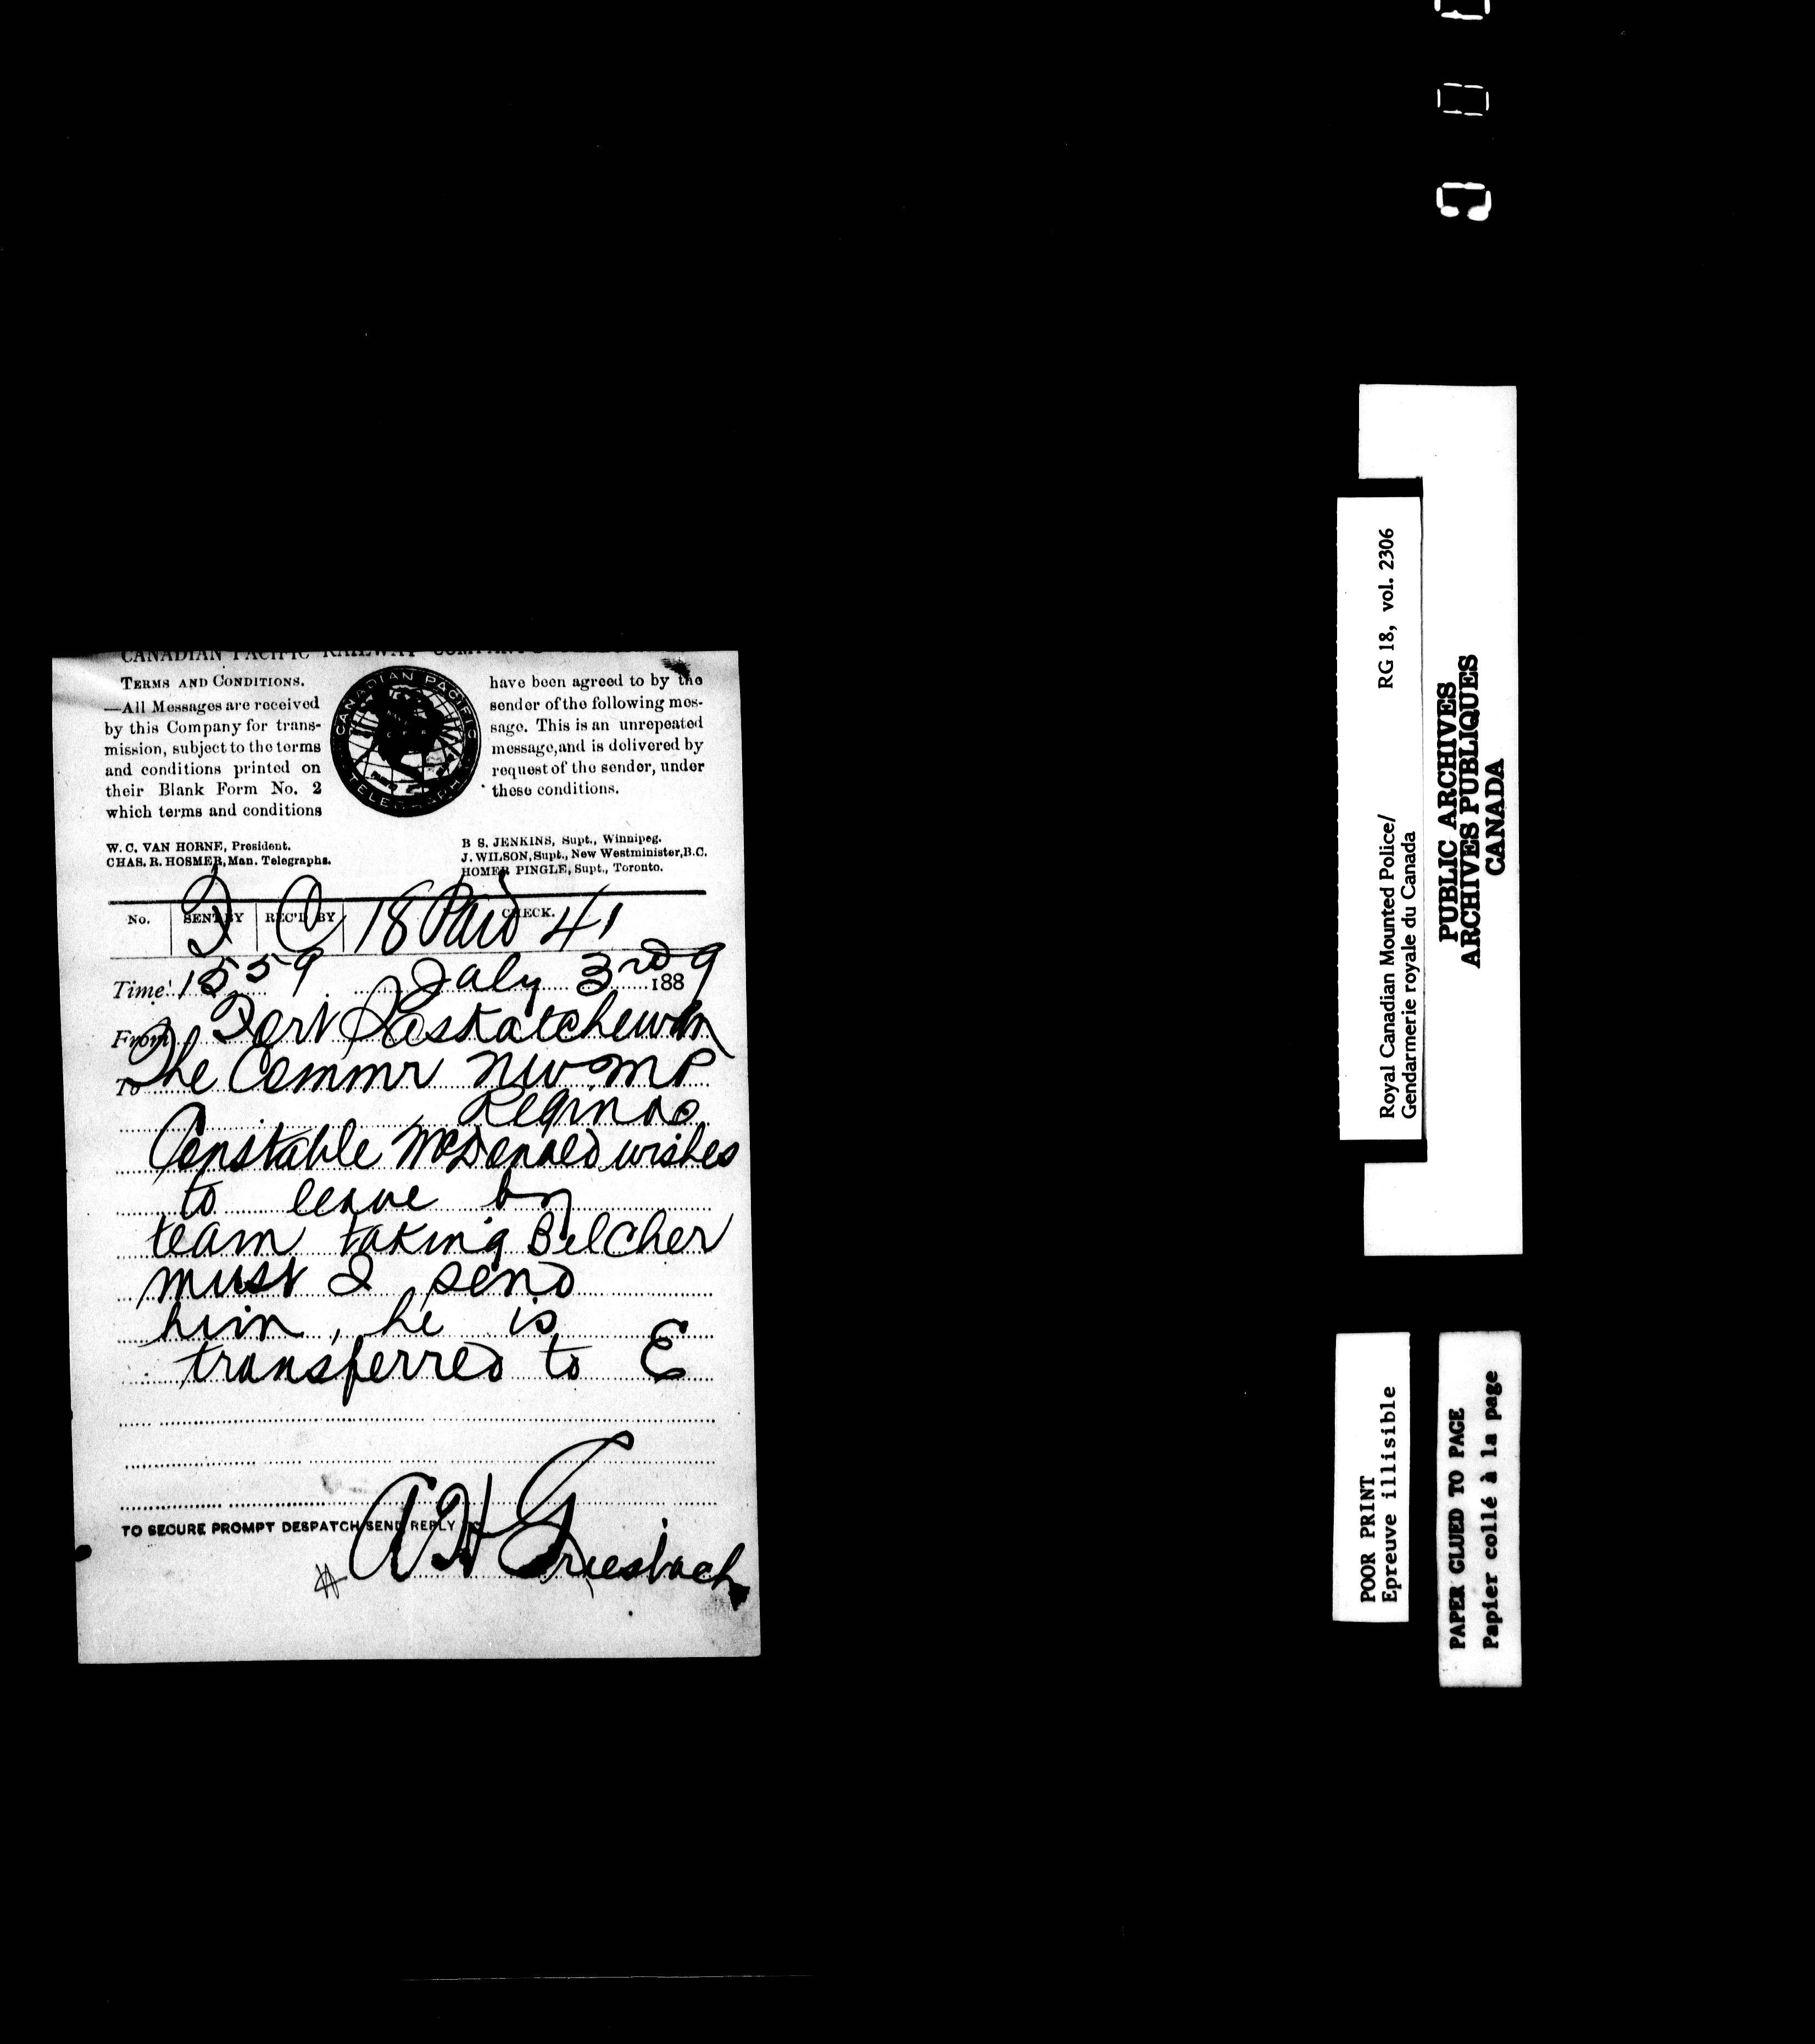 CANADIAN PACIFIC RAILWAY COMPANY'S
TERMS AND CONDITIONS.
—All Messages are received
by this Company for trans-
mission, subject to the terms
and conditions printed on
their Blank Form No. 2
which terms and conditions
CANADIAN PACIFIC
TELEGRAPH
have been agreed to by the
sender of the following mes-
sage. This is an unrepeated
message, and is delivered by
request of the sender, under
these conditions.
W. C. VAN HORNE, President.
CHAS. R. HOSMER, Man. Telegraphs.
B S. JENKINS, Supt., Winnipeg.
J. WILSON, Supt., New Westminister, B.C.
HOMER PINGLE, Supt., Toronto.
No. SENT BY REC'D BY CHECK.
C 18 Paid 41
Time: 1559 July 3rd 1889
From Fort Saskatchewan
To The Commr NWMP
Regina
Constable McDonald wishes
to leave by
team taking Belcher
must I send
him, he is
transferred to E
TO SECURE PROMPT DESPATCH SEND REPLY
A H Griesbach
Royal Canadian Mounted Police/ RG 18, vol. 2306
Gendarmerie royale du Canada
PUBLIC ARCHIVES
ARCHIVES PUBLIQUES
CANADA
POOR PRINT
Epreuve illisible
PAPER GLUED TO PAGE
Papier collé à la page